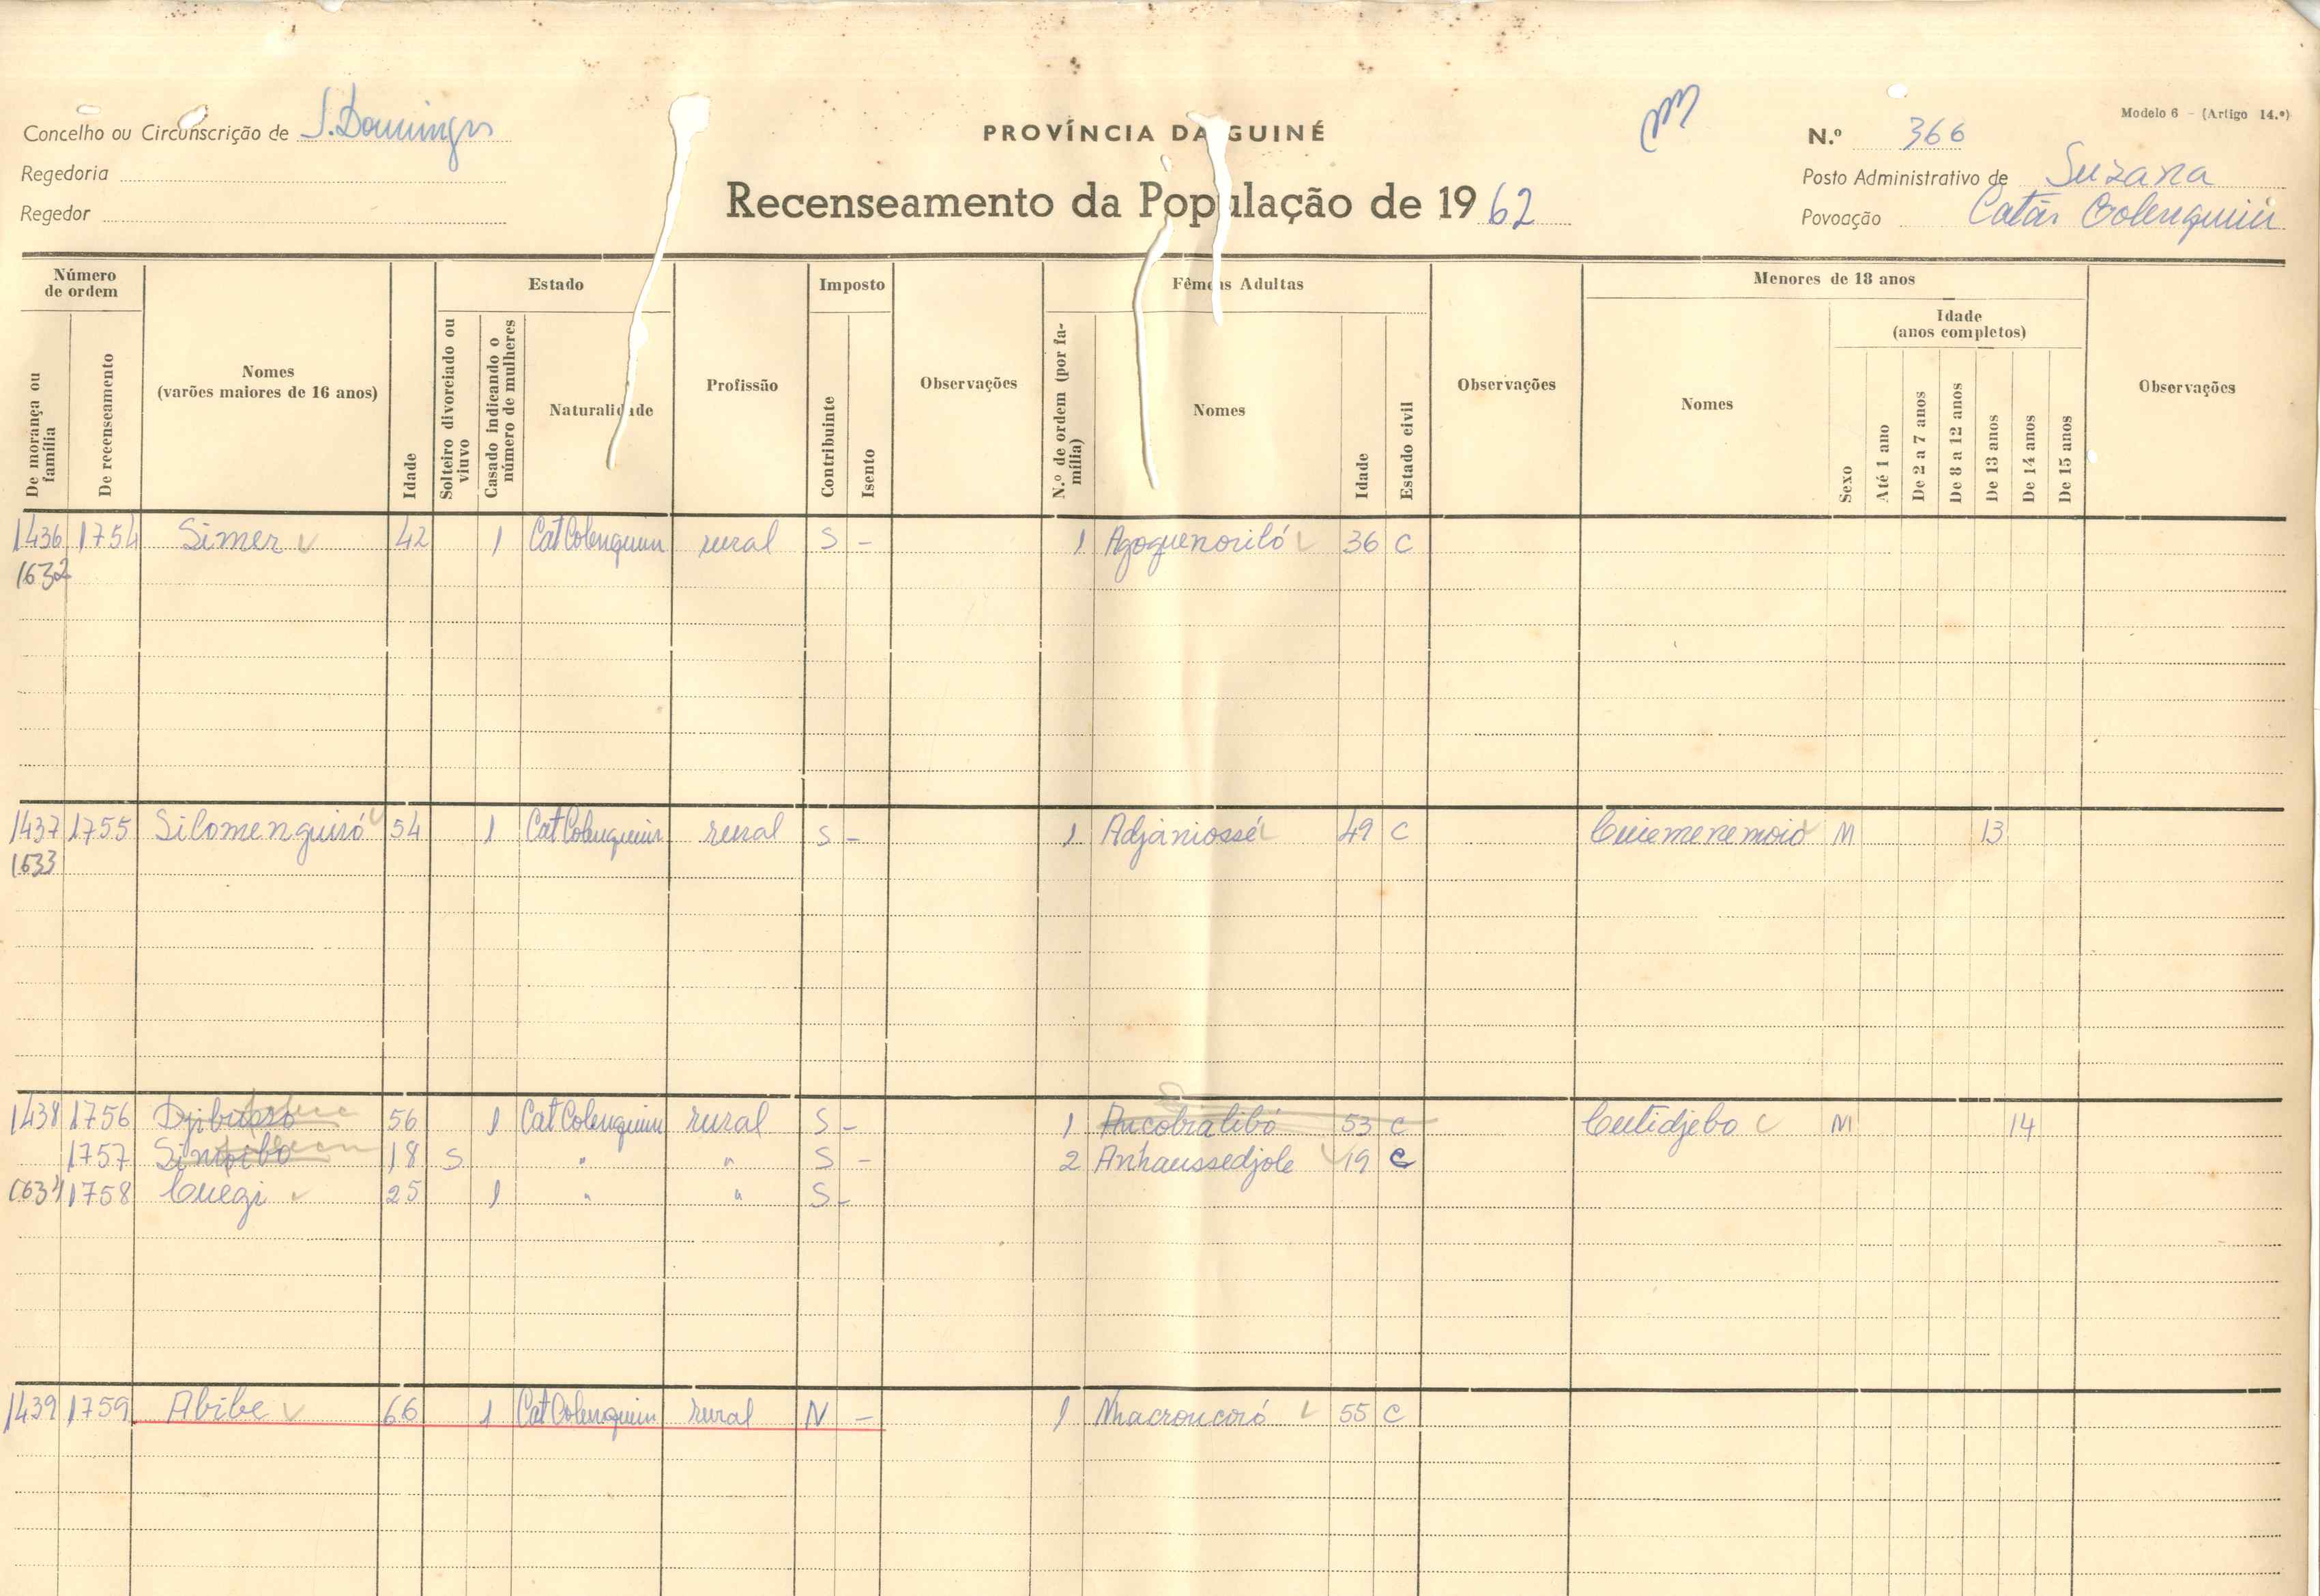 Modelo 6 - (Artigo 14.º)
Concelho ou Circunscrição de S. Domingos
PROVÍNCIA DA GUINÉ
N.º 366
Regedoria
Posto Administrativo de Suzana
Regedor
Recenseamento da População de 1962
Povoação Catão Colenquim
Número de ordem
Estado
Imposto
Fêmeas Adultas
Menores de 18 anos
De morança ou família
De recenseamento
Nomes (varões maiores de 16 anos)
Idade
Solteiro divorciado ou viuvo
Casado indicando o número de mulheres
Naturalidade
Profissão
Contribuinte
Isento
Observações
N.º de ordem (por família)
Nomes
Idade
Estado civil
Observações
Nomes
Sexo
Idade (anos completos)
Até 1 ano
De 2 a 7 anos
De 8 a 12 anos
De 13 anos
De 14 anos
De 15 anos
Observações
1436 1754 Simer 42 1 Cat Colenquim rural S - 1 Agoquenoriló 36 C
1632
1437 1755 Silomenguiró 54 1 Cat Colenquim rural S - 1 Adjaniossé 49 C Cuiemenemoio M 13
1633
1438 1756 Djibusso 56 1 Cat Colenquim rural S - 1 Ancobralibó 53 C Cutidjebo M 14
1757 18 S " " S - 2 Anhaussedjole 19 C
1634 1758 Cuegi 25 1 " " S -
1439 1759 Abibe 66 1 Cat Colenquim rural N - 1 Nhacroucoró 55 C